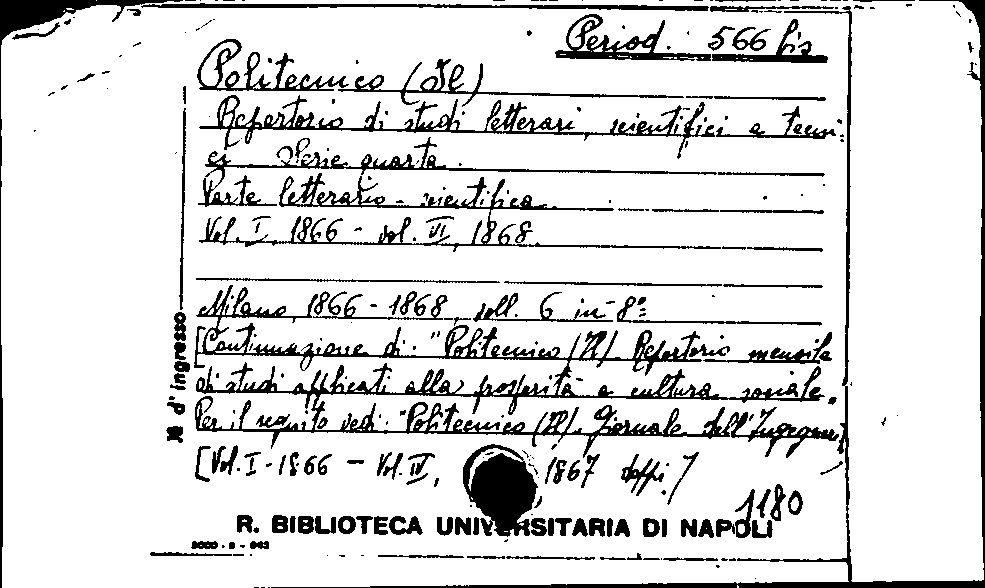 Period. 566 bis
Politecnico (Il)
Repertorio di studi letterari, scientifici e tecni-
ci. Serie quarta.
Parte letterario - scientifica.
Vol. I, 1866 - vol. VI, 1868.
Milano, 1866 - 1868, voll. 6 in-8°=
[Continuazione di: "Politecnico (Il). Repertorio mensile
di studi applicati alla prosperità e cultura sociale„
Per il seguito vedi: "Politecnico (Il). Giornale dell'Ingegnere]
[Vol. I - 1866 - Vol. IV, 1867 doppi.]
1180
№ d'ingresso
R. BIBLIOTECA UNIVERSITARIA DI NAPOLI